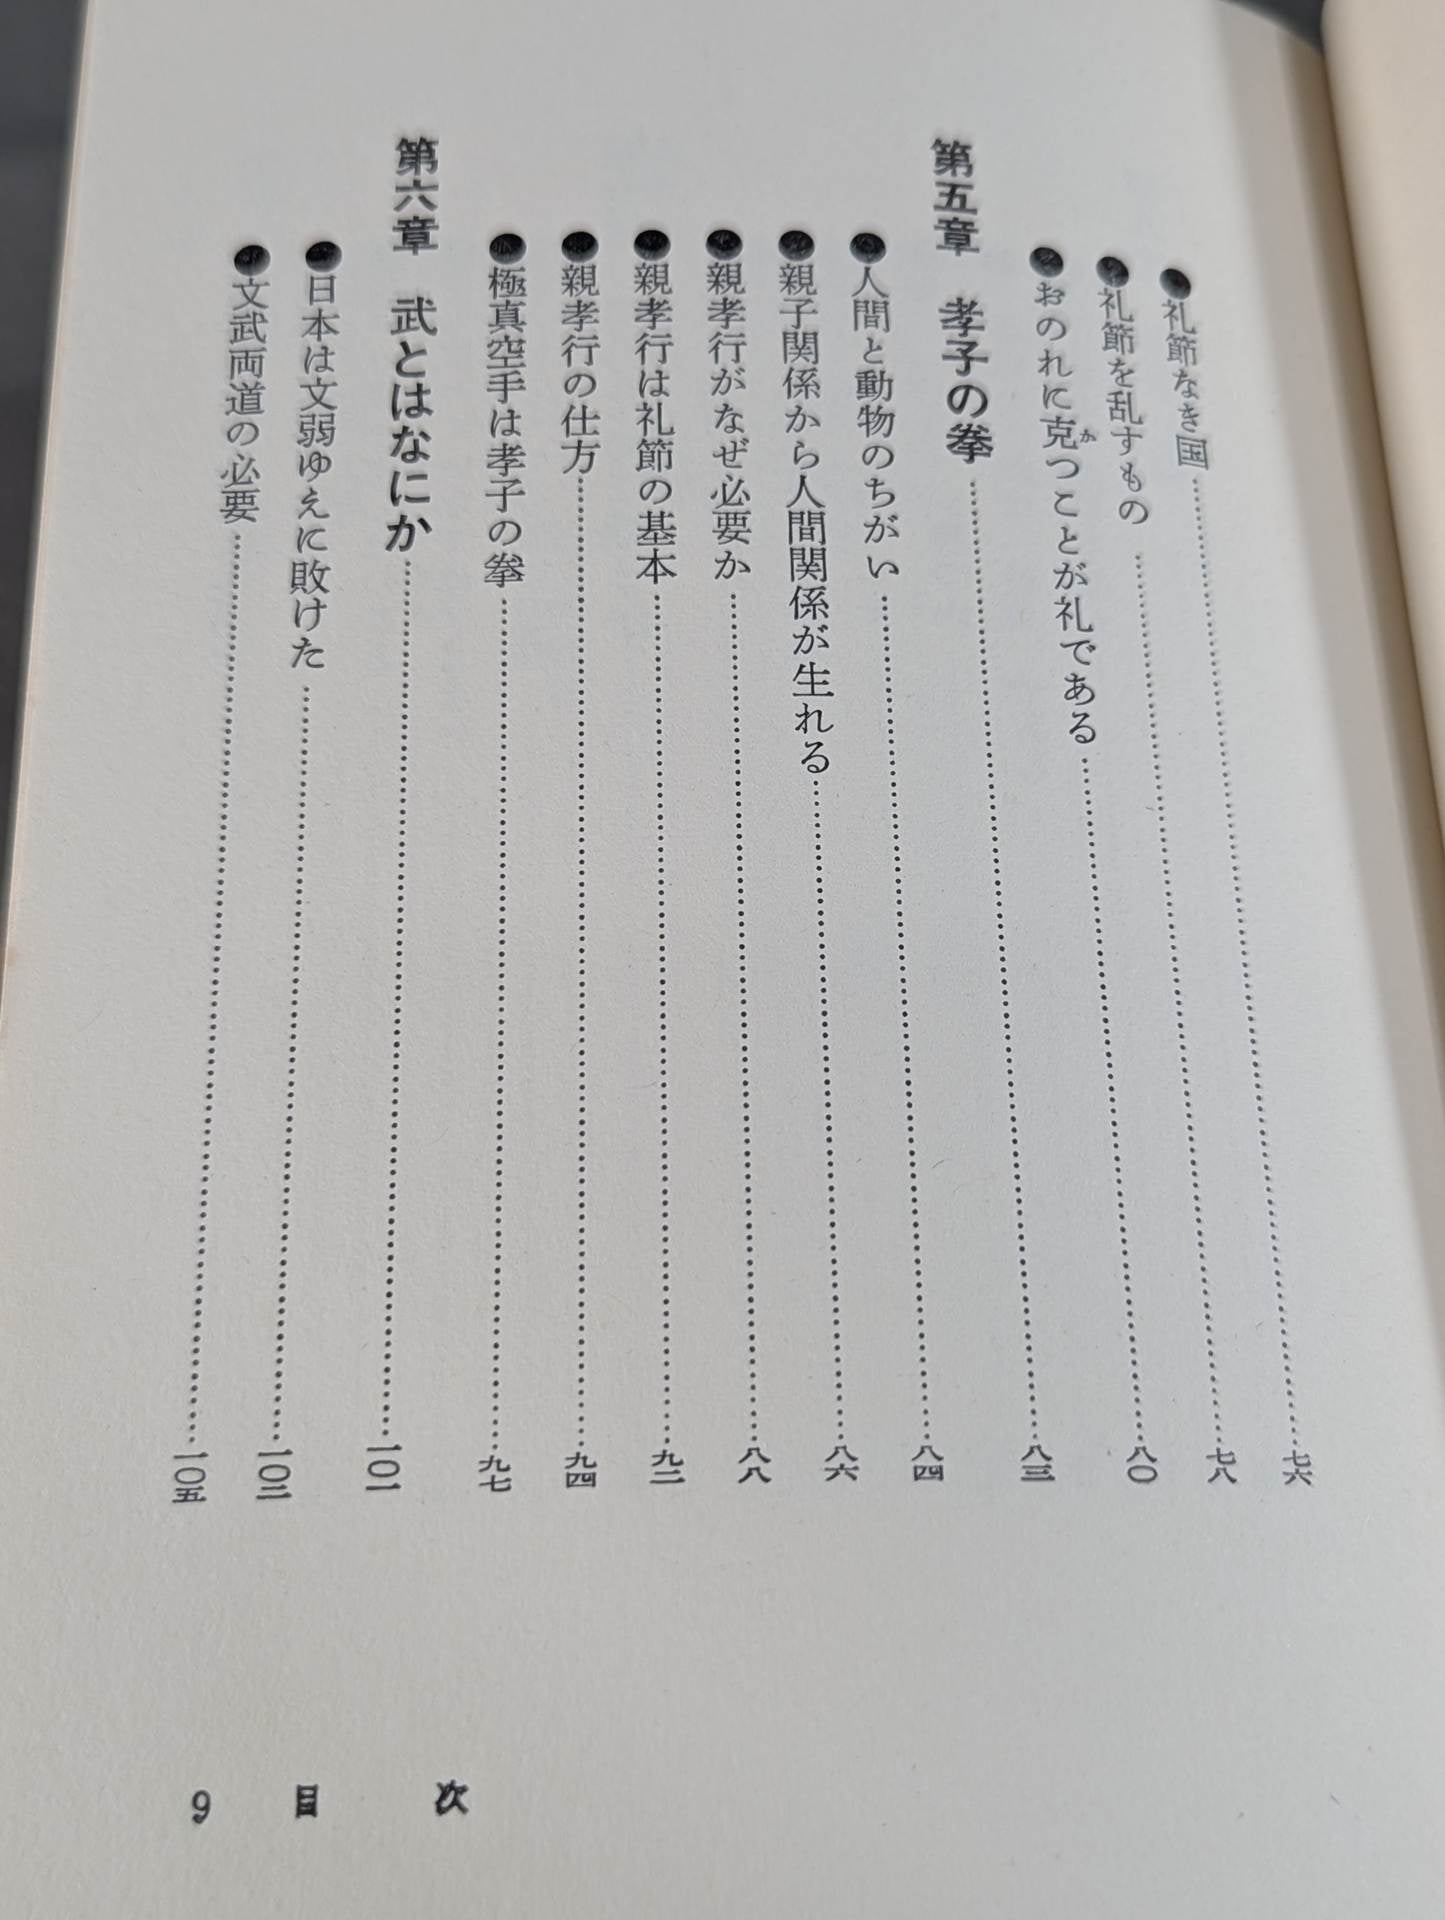 ●礼節なき国……七六
●礼節を乱すもの……七八
●おのれに克つことが礼である……八〇
か
第五章 孝子の拳……八三
●人間と動物のちがい……八四
●親子関係から人間関係が生れる……八六
●親孝行がなぜ必要か……八八
●親孝行は礼節の基本……九二
●親孝行の仕方……九四
●極真空手は孝子の拳……九七
第六章 武とはなにか……一〇一
●日本は文弱ゆえに敗けた……一〇三
●文武両道の必要……一〇五
9 目 次